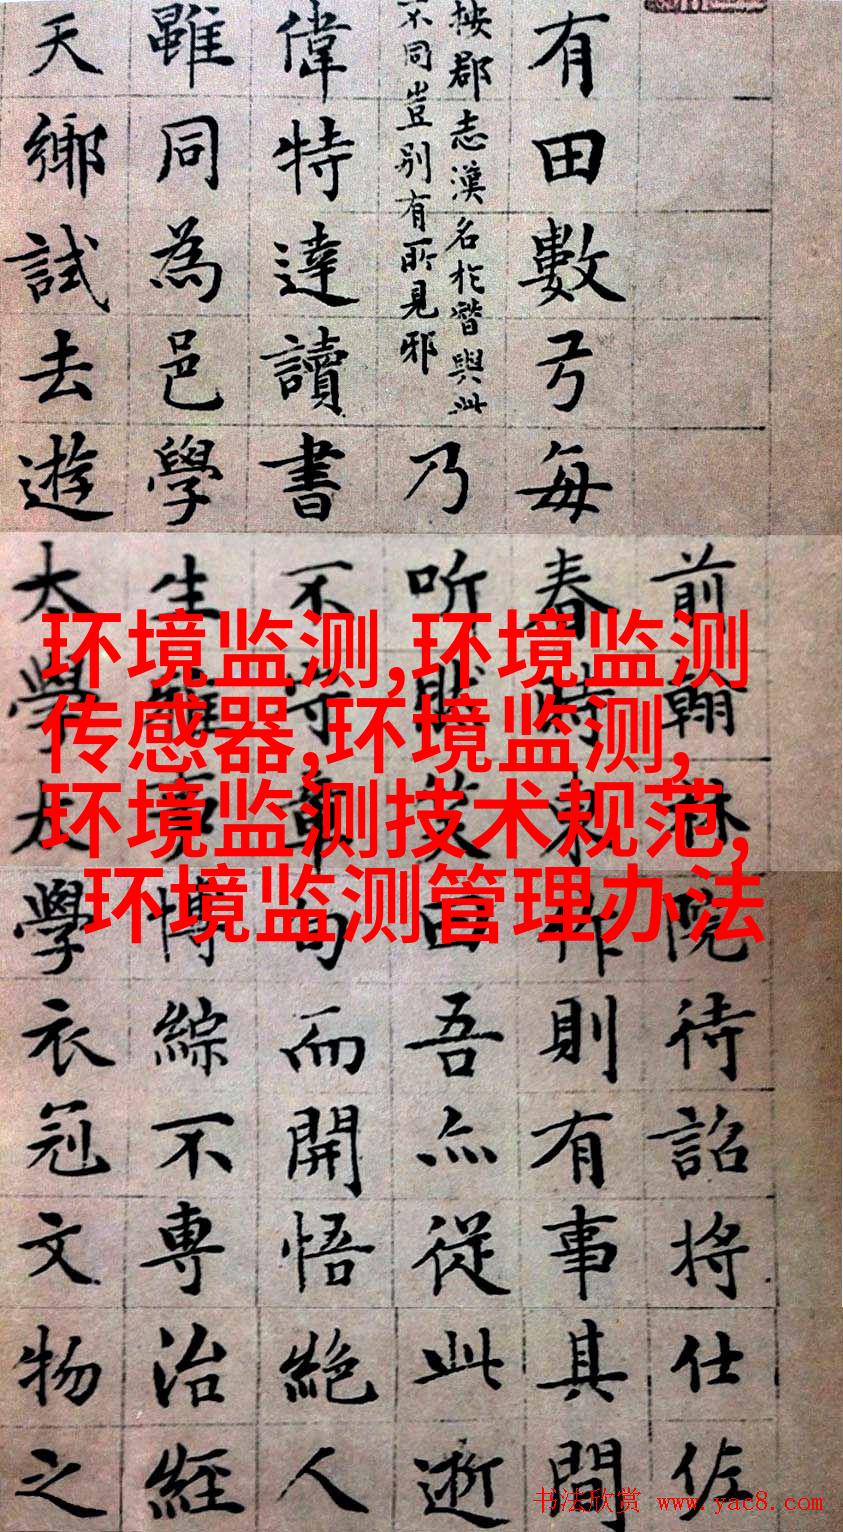 前翰林院待詔將仕佐
有田數弓每春時東作則有事其間
按郡志漢名於與此
不同豈別有所見邪
乃听然笑曰吾亦從此逝
偉特達讀書不守章句而開悟絕人
雖同為邑學生博綜不專治經
天鄉試去遊太學太學衣冠文物之
环境监测,环境监测
传感器,环境监测,
环境监测技术规范,
环境监测管理办法
书法欣赏 www.yac8.com